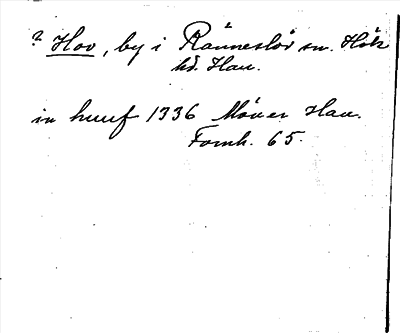 ? Hov, by i Ränneslöv sn. Hök
hd. Hall.
in huuf 1336 Möller Hall.
Fornh. 65.